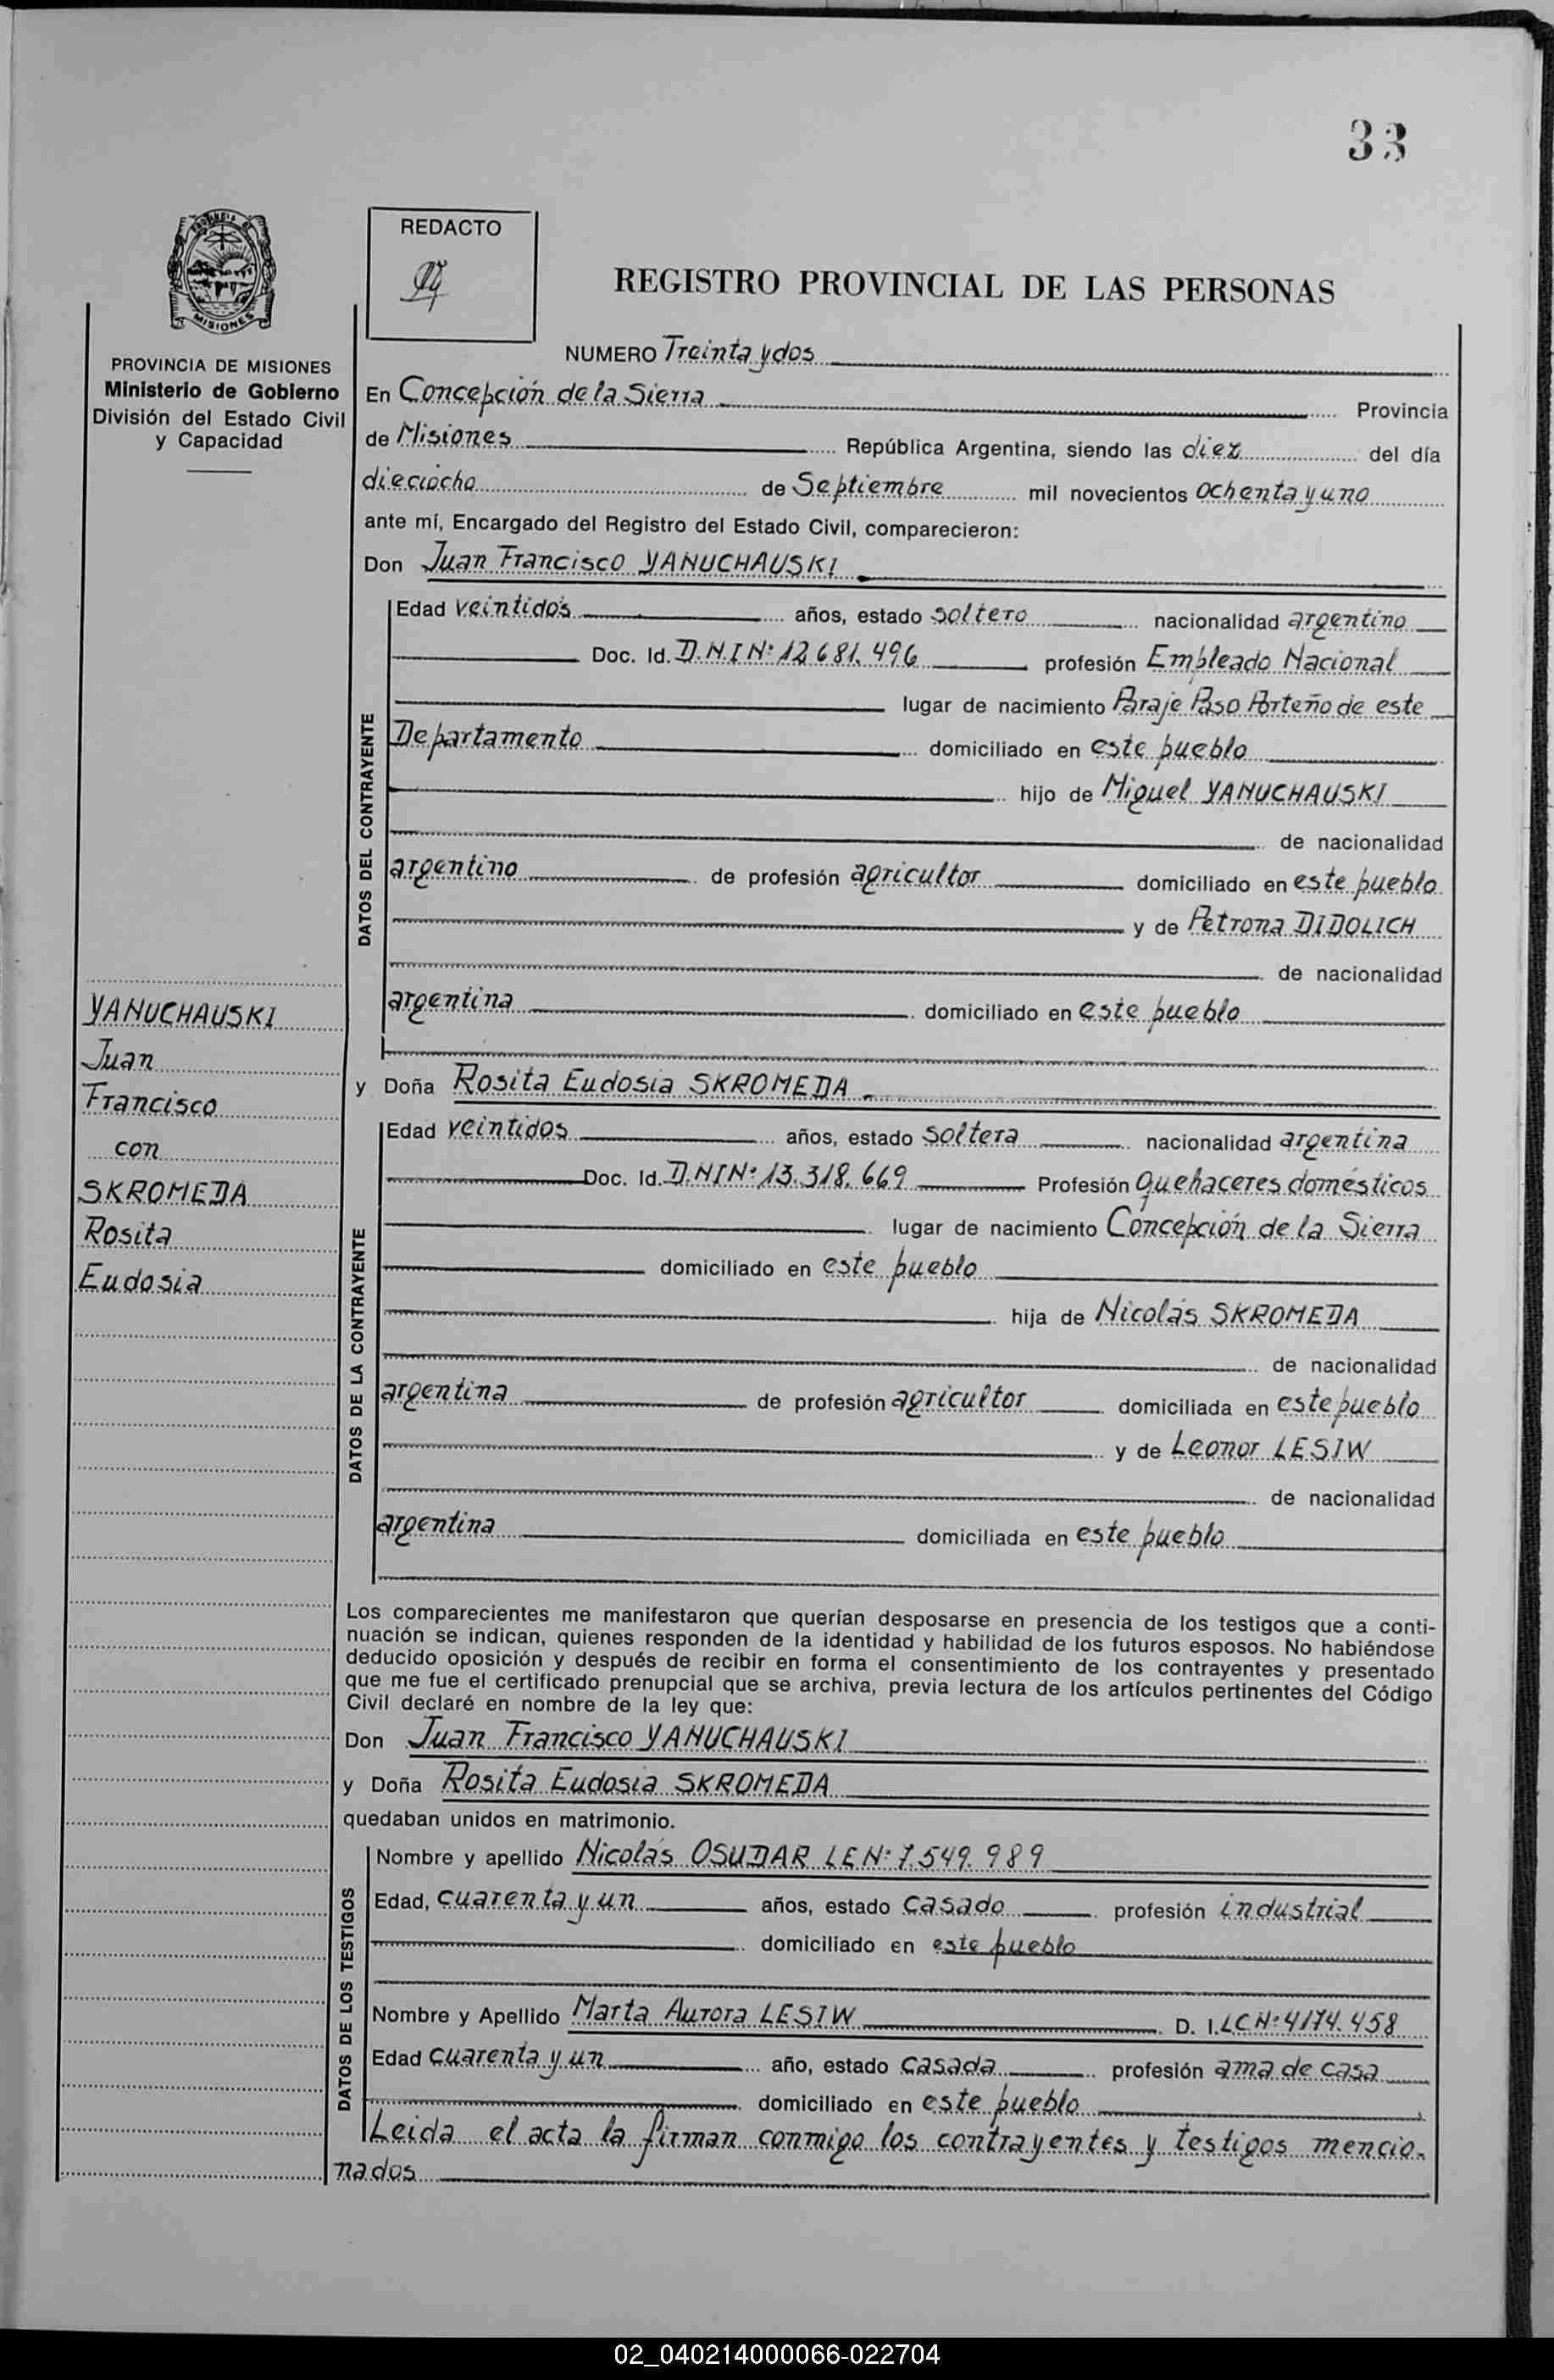 33
REDACTO
REGISTRO PROVINCIAL DE LAS PERSONAS
MISIONES
PROVINCIA DE MISIONES
Ministerio de Gobierno
División del Estado Civil
y Capacidad
NUMERO Treinta y dos
En Concepción de la Sierra Provincia
de Misiones República Argentina, siendo las diez del día
dieciocho de Septiembre mil novecientos ochenta y uno
ante mí, Encargado del Registro del Estado Civil, comparecieron:
Don Juan Francisco YANUCHAUSKI
DATOS DEL CONTRAYENTE
Edad veintidós años, estado soltero nacionalidad argentino
Doc. Id. D.N.I Nº 12.681.496 profesión Empleado Nacional
lugar de nacimiento Paraje Paso Porteño de este
Departamento domiciliado en este pueblo
hijo de Miguel YANUCHAUSKI
de nacionalidad
argentino de profesión agricultor domiciliado en este pueblo
y de Petrona DIDOLICH
de nacionalidad
argentina domiciliado en este pueblo
YANUCHAUSKI
Juan
Francisco
con
SKROMEDA
Rosita
Eudosia
y Doña Rosita Eudosia SKROMEDA
DATOS DE LA CONTRAYENTE
Edad veintidos años, estado soltera nacionalidad argentina
Doc. Id. D.NI Nº 13.318.669 Profesión quehaceres domésticos
lugar de nacimiento Concepción de la Sierra
domiciliado en este pueblo
hija de Nicolás SKROMEDA
de nacionalidad
argentina de profesión agricultor domiciliada en este pueblo
y de Leonor LESIW
de nacionalidad
argentina domiciliada en este pueblo
Los comparecientes me manifestaron que querían desposarse en presencia de los testigos que a conti-
nuación se indican, quienes responden de la identidad y habilidad de los futuros esposos. No habiéndose
deducido oposición y después de recibir en forma el consentimiento de los contrayentes y presentado
que me fue el certificado prenupcial que se archiva, previa lectura de los artículos pertinentes del Código
Civil declaré en nombre de la ley que:
Don Juan Francisco YANUCHAUSKI
y Doña Rosita Eudosia SKROMEDA
quedaban unidos en matrimonio.
DATOS DE LOS TESTIGOS
Nombre y apellido Nicolás OSUDAR LE Nº 7.549.989
Edad, cuarenta y un años, estado casado profesión industrial
domiciliado en este pueblo
Nombre y Apellido Marta Aurora LESIW D. I. LC Nº 4174.458
Edad cuarenta y un año, estado casada profesión ama de casa
domiciliado en este pueblo
Leida el acta la firman conmigo los contrayentes y testigos mencio-
nados
02_040214000066-022704